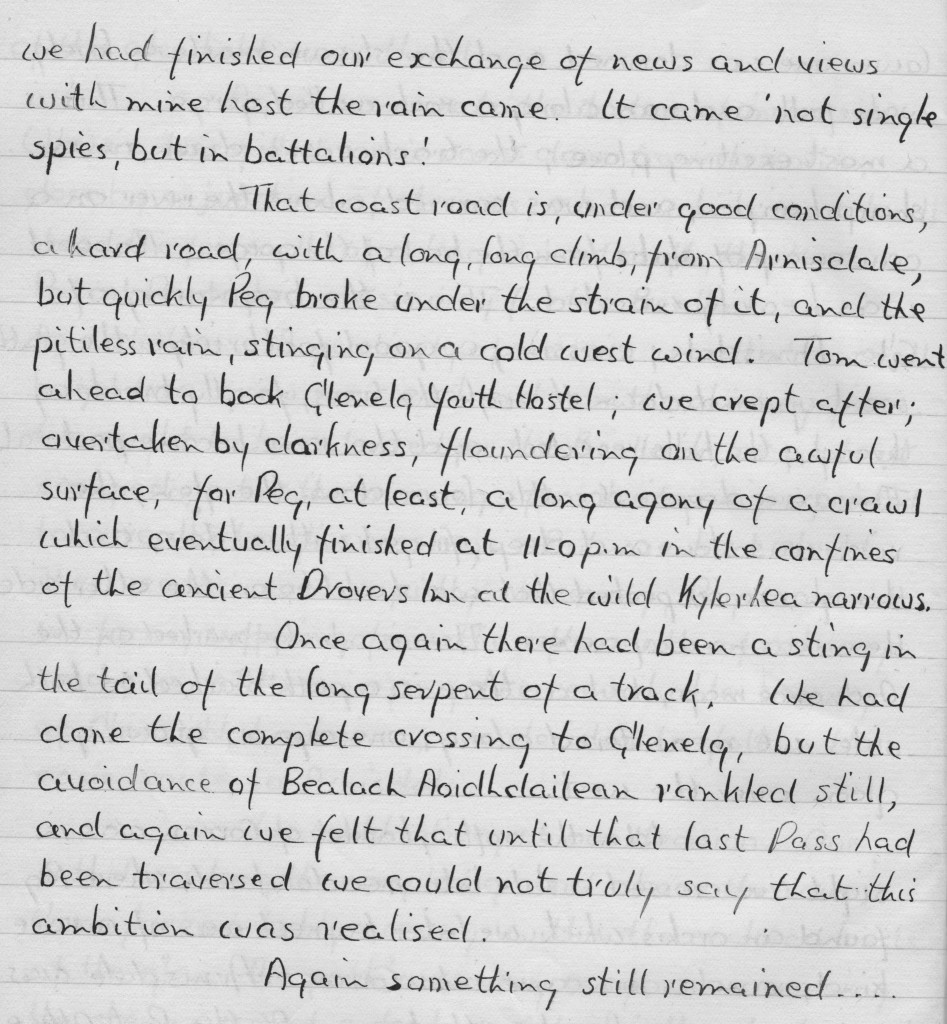 we had finished our exchange of news and views
with mine host the rain came. It came 'not single
spies, but in battalions'
That coast road is, under good conditions,
a hard road, with a long, long climb, from Arnisdale,
but quickly Peg broke under the strain of it, and the
pitiless rain, stinging on a cold west wind. Tom went
ahead to book Glenelg Youth Hostel; we crept after;
overtaken by darkness, floundering on the awful
surface, for Peg, at least, a long agony of a crawl
which eventually finished at 11-0 p.m in the confines
of the ancient Drovers Inn at the wild Kylerhea narrows.
Once again there had been a sting in
the tail of the long serpent of a track. We had
done the complete crossing to Glenelg, but the
avoidance of Bealach Aoidhdailean rankled still,
and again we felt that until that last Pass had
been traversed we could not truly say that this
ambition was realised.
Again something still remained....